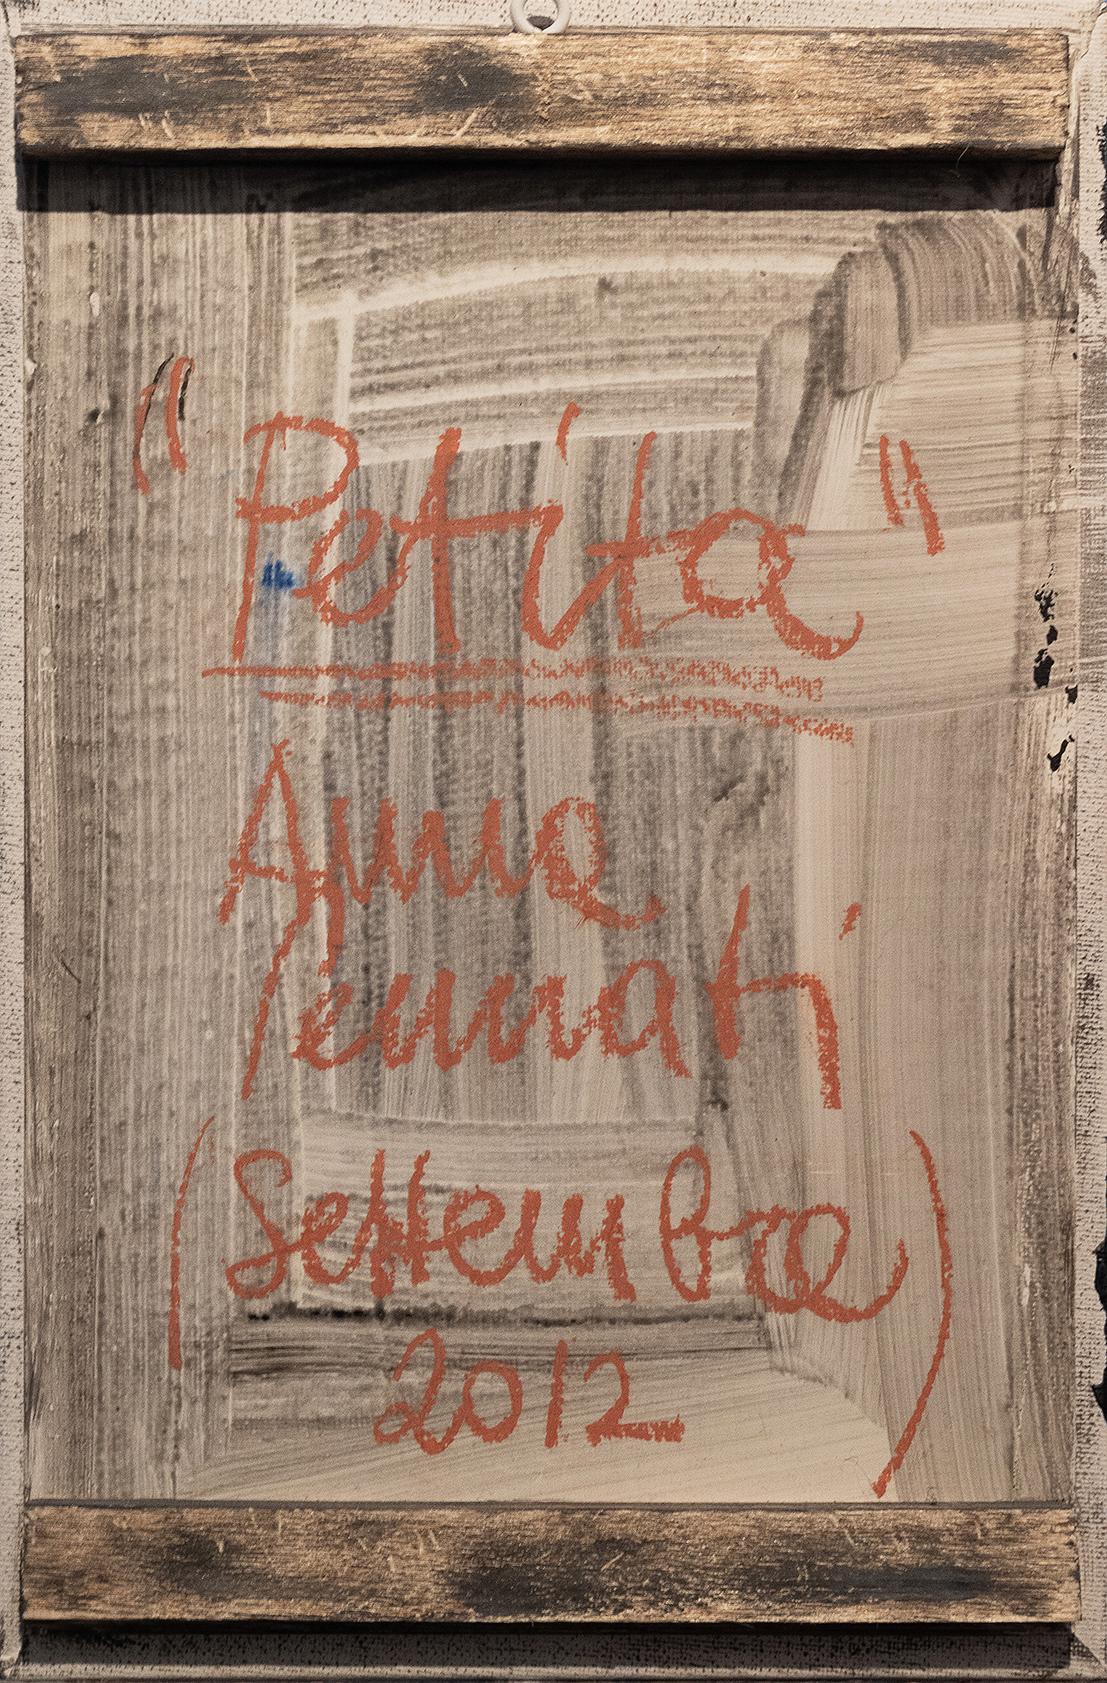 "Petita"
Anna
Pennati
(Settembre
2012)